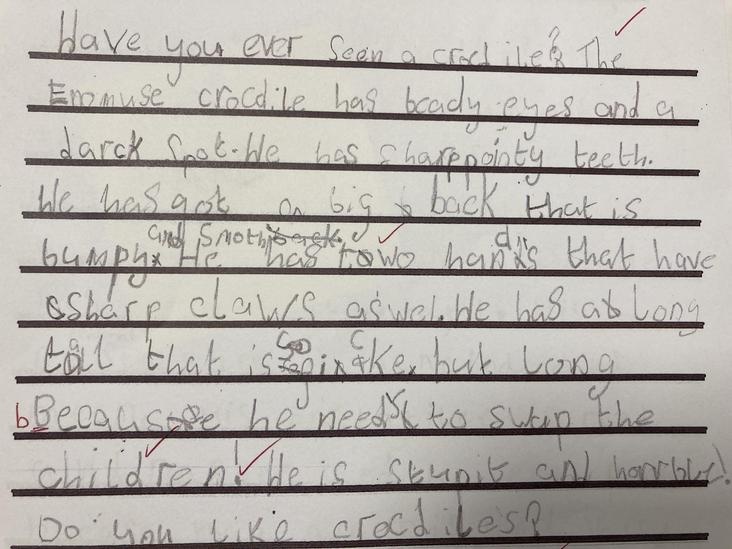 Have you ever seen a crocdile? The
Enomuse crocdile has beady eyes and a
darck spot. He has sharp pointy teeth.
He has got a big back that is
bumphy and smoth. He has towo hands that have
sharp claws aswel. He has a long
tall that is so tike. but long
because he needs to swip the
children! He is stupit and horrible!
Do you like crocdiles?